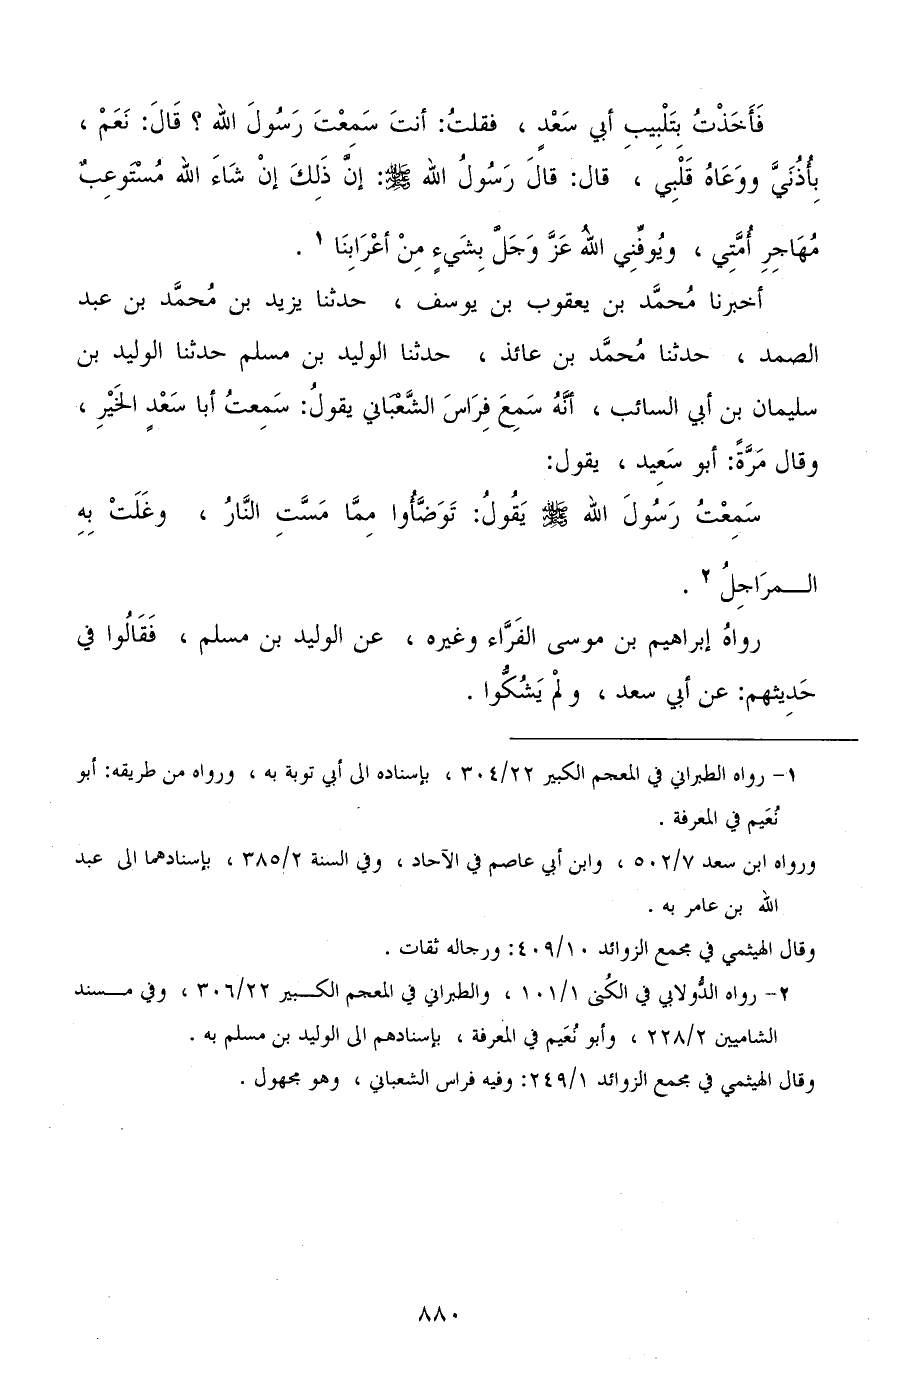 فَأَخَذْتُ بِتَلْبِيبِ أبي سَعْدٍ ، فقلتُ: أنتَ سَمِعْتَ رَسُولَ الله ؟ قَالَ: نَعَمْ ،
بِأُذُنَيَّ ووَعَاهُ قَلْبِي ، قال: قالَ رَسُولُ الله ﷺ: إنَّ ذَلِكَ إنْ شَاءَ الله مُسْتَوعِبٌ
مُهَاجِرِ أُمَّتِي ، ويُوفِّنِي اللهُ عَزَّ وَجَلَّ بِشَيءٍ مِنْ أعْرَابِنَا ١ .
أخبرنا مُحمَّد بن يعقوب بن يوسف ، حدثنا يزيد بن مُحمَّد بن عبد
الصمد ، حدثنا مُحمَّد بن عائذ ، حدثنا الوليد بن مسلم حدثنا الوليد بن
سليمان بن أبي السائب ، أنَّهُ سَمِعَ فِرَاسَ الشَّعْبَاني يقولُ: سَمِعتُ أبا سَعْدٍ الخَيْرِ ،
وقال مَرَّةً: أبو سَعِيد ، يقول:
سَمِعْتُ رَسُولَ الله ﷺ يَقُولُ: تَوَضَّأُوا مِمَّا مَسَّتِ النَّارُ ، وغَلَتْ بِهِ
الـــمرَاجِلُ ٢ .
رواهُ إبراهيم بن موسى الفَرَّاء وغيره ، عن الوليد بن مسلم ، فَقَالُوا في
حَدِيثهم: عن أبي سعد ، ولمْ يَشُكُّوا .
١- رواه الطبراني في المعجم الكبير ٣٠٤/٢٢ ، بإسناده الى أبي توبة به ، ورواه من طريقه: أبو
نُعَيم في المعرفة .
ورواه ابن سعد ٥٠٢/٧ ، وابن أبي عاصم في الآحاد ، وفي السنة ٣٨٥/٢ ، بإسنادهما الى عبد
الله بن عامر به .
وقال الهيثمي في مجمع الزوائد ٤٠٩/١٠: ورجاله ثقات .
٢- رواه الدُّولابي في الكُنى ١٠١/١ ، والطبراني في المعجم الكـــبير ٣٠٦/٢٢ ، وفي مـــسند
الشاميين ٢٢٨/٢ ، وأبو نُعَيم في المعرفة ، بإسنادهم الى الوليد بن مسلم به .
وقال الهيثمي في مجمع الزوائد ٢٤٩/١: وفيه فراس الشعباني ، وهو مجهول .
٨٨٠